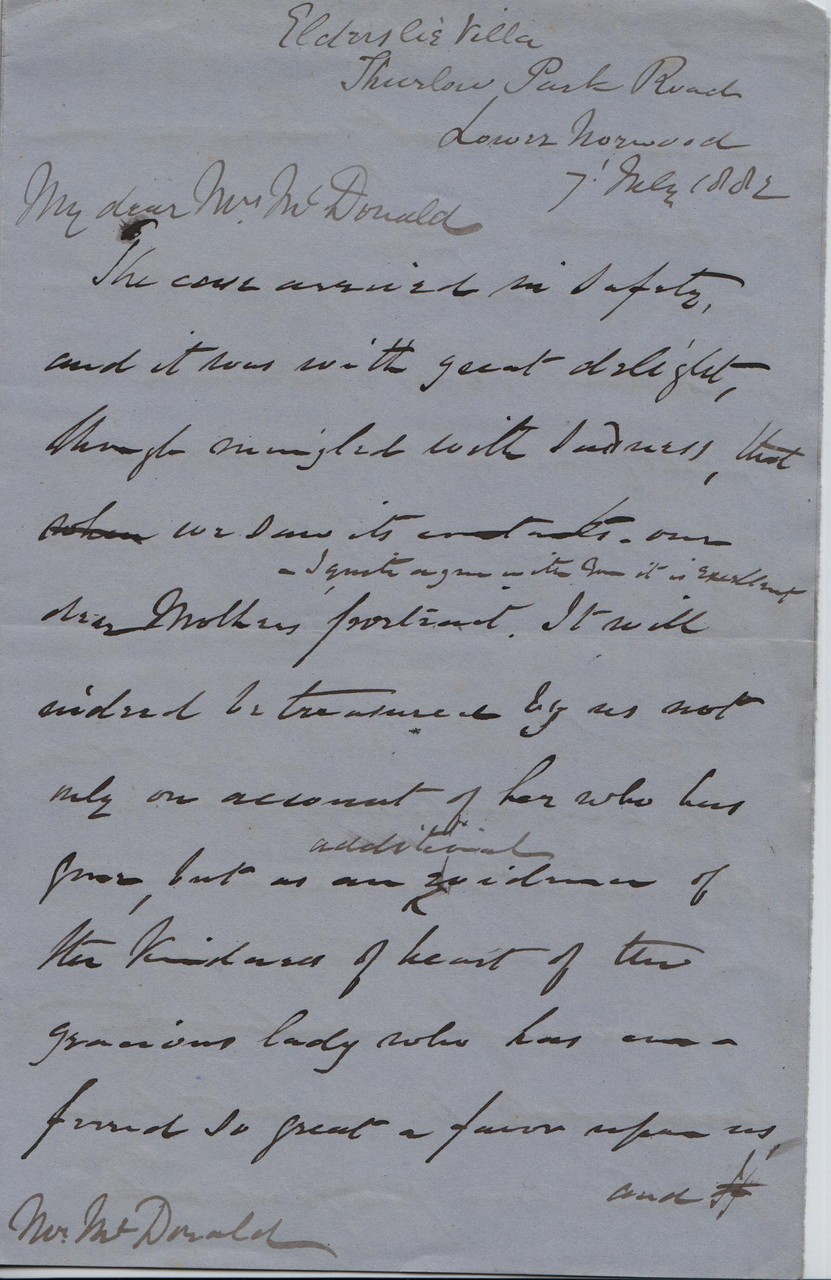 Elderslie Villa
Thurlow Park Road
Lower Norwood
7' July 1882
My dear Mrs. McDonald
The case arrived in safety,
and it was with great delight,
though mingled with sadness, that
when we saw its contents - our
- I quite agree with you it is excellent
dear Mothers portrait. It will
indeed be treasured by us not
only on account of her who has
additional
gone, but as an evidence of
the kindness of heart of the
gracious lady who has con-
ferred so great a favor upon us,
and
Mrs. McDonald